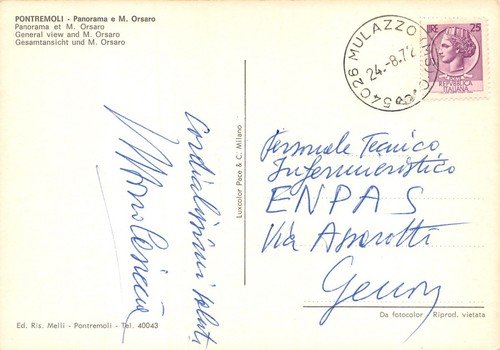 PONTREMOLI - Panorama e M. Orsaro
Panorama et M. Orsaro
General view and M. Orsaro
Gesamtansicht und M. Orsaro
54026 MULAZZO
24.-8.72
LIRE 25
REPUBBLICA
ITALIANA
Cordialissimi saluti
Luxcolor Pace & C. Milano
Personale Tecnico
Infermieristico
ENPAS
Via Assarotti
Genova
Ed. Ris. Melli - Pontremoli - Tel. 40043
Da fotocolor - Riprod. vietata